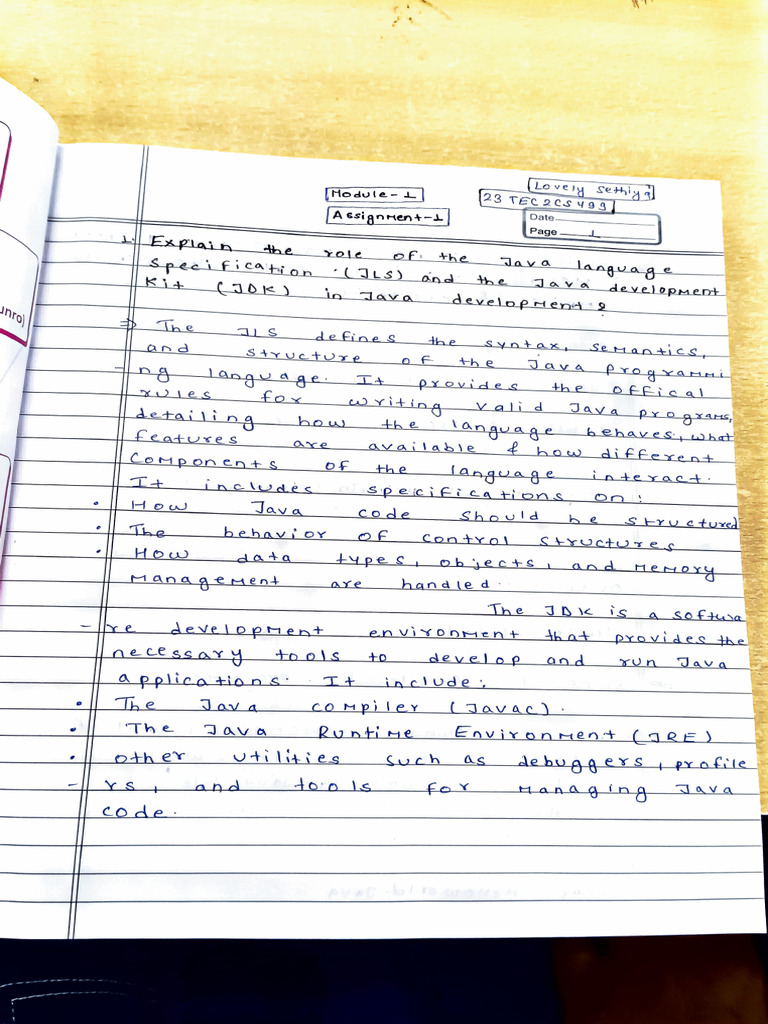 Lovely Sethiya
Module-1
23TEC2CS493
Assignment-1
Date
Page 1
1. Explain the role of the Java language
Specification (JLS) and the Java development
Kit (JDK) in Java development?
⇒ The JLS defines the syntax, semantics,
and structure of the Java programmi
- ng language. It provides the offical
rules for writing valid Java programs,
detailing how the language behaves, what
features are available & how different
components of the language interact.
It includes specifications on:
• How Java code should be structured
• The behavior of control structures
• How data types, objects, and memory
management are handled.
The JDK is a softwa
- re development environment that provides the
necessary tools to develop and run Java
applications. It include:
• The Java compiler (Javac).
• The Java Runtime Environment (JRE)
• other utilities such as debuggers, profile
- rs, and tools for managing Java
code.
unro)